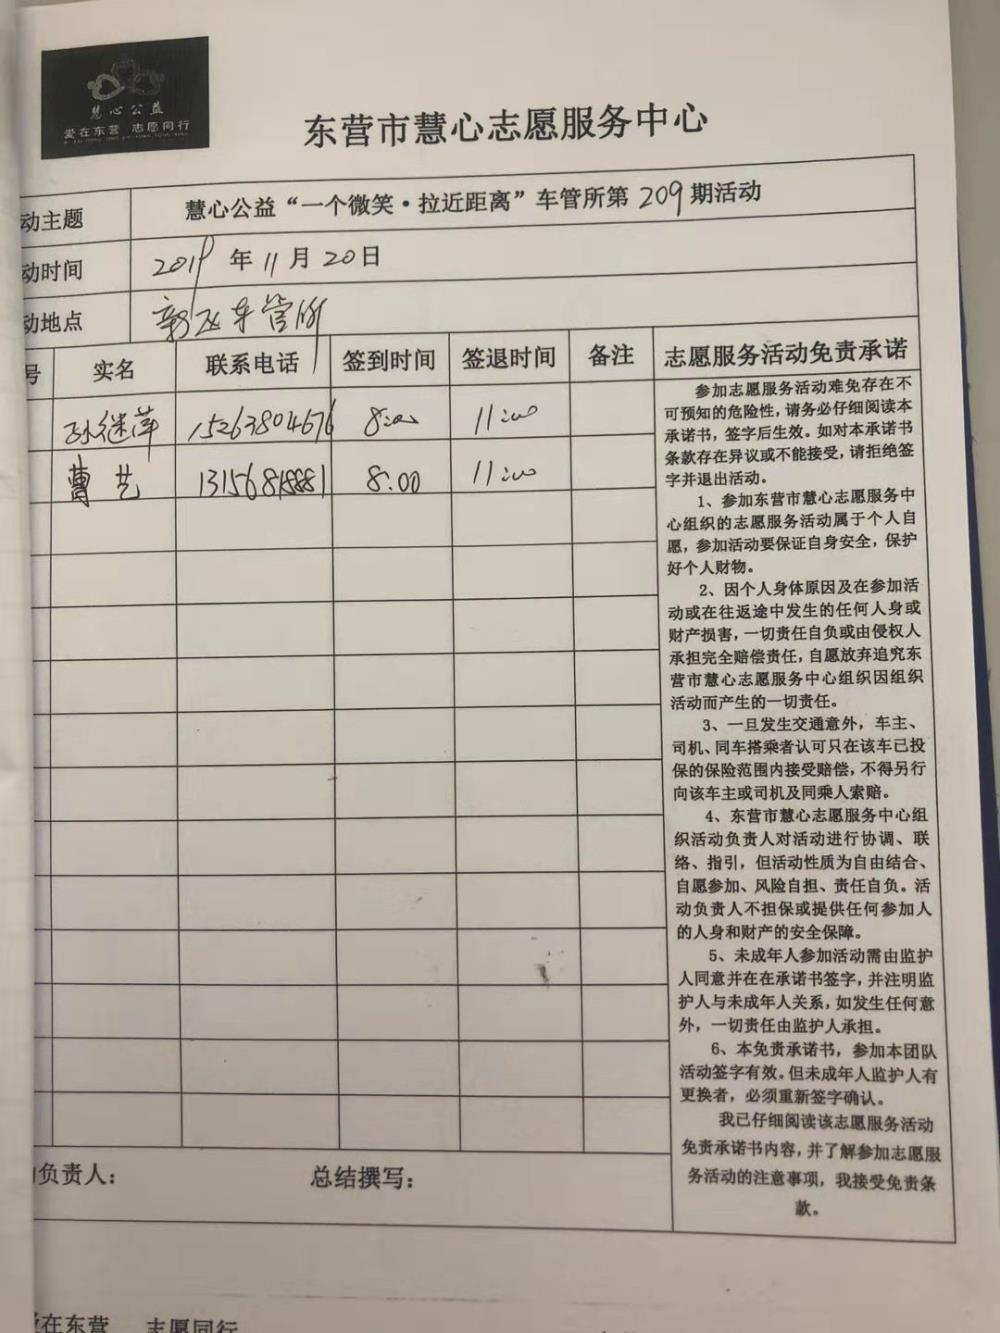 慧心公益
爱在东营 志愿同行
东营市慧心志愿服务中心
动主题 慧心公益“一个微笑·拉近距离”车管所第209期活动
动时间 2019年11月20日
动地点 车管所
号 实名 联系电话 签到时间 签退时间 备注 志愿服务活动免责承诺
孙继萍 15263804676 8:00 11:00
曹艺 13156818881 8:00 11:00
参加志愿服务活动难免存在不
可预知的危险性，请务必仔细阅读本
承诺书，签字后生效。如对本承诺书
条款存在异议或不能接受，请拒绝签
字并退出活动。
1、参加东营市慧心志愿服务中
心组织的志愿服务活动属于个人自
愿，参加活动要保证自身安全，保护
好个人财物。
2、因个人身体原因及在参加活
动或在往返途中发生的任何人身或
财产损害，一切责任自负或由侵权人
承担完全赔偿责任，自愿放弃追究东
营市慧心志愿服务中心组织因组织
活动而产生的一切责任。
3、一旦发生交通意外，车主、
司机、同车搭乘者认可只在该车已投
保的保险范围内接受赔偿，不得另行
向该车主或司机及同乘人索赔。
4、东营市慧心志愿服务中心组
织活动负责人对活动进行协调、联
络、指引，但活动性质为自由结合、
自愿参加、风险自担、责任自负。活
动负责人不担保或提供任何参加人
的人身和财产的安全保障。
5、未成年人参加活动需由监护
人同意并在在承诺书签字，并注明监
护人与未成年人关系，如发生任何意
外，一切责任由监护人承担。
6、本免责承诺书，参加本团队
活动签字有效。但未成年人监护人有
更换者，必须重新签字确认。
我已仔细阅读该志愿服务活动
免责承诺书内容，并了解参加志愿服
务活动的注意事项，我接受免责条
款。
负责人： 总结撰写：
爱在东营 志愿同行